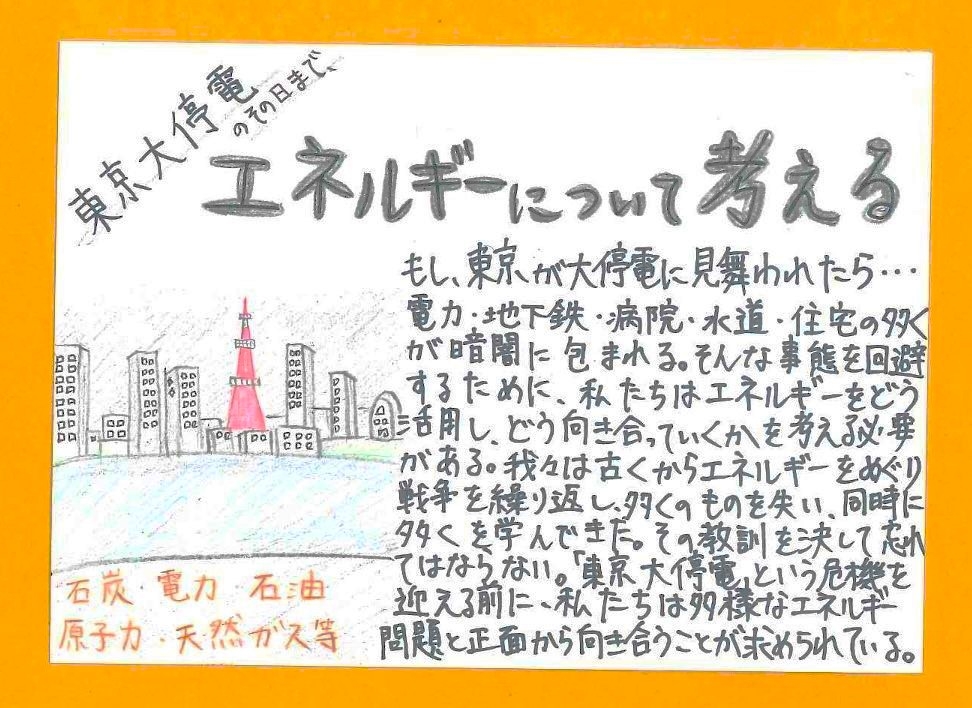 東京大停電
のその日まで、
エネルギーについて考える
もし、東京が大停電に見舞われたら…
電力・地下鉄・病院・水道・住宅の多く
が暗闇に包まれる。そんな事態を回避
するために、私たちはエネルギーをどう
活用し、どう向き合っていくかを考える必要
がある。我々は古くからエネルギーをめぐり
戦争を繰り返し、多くのものを失い、同時に
多くを学んできた。その教訓を決して忘れ
てはならない。「東京大停電」という危機を
迎える前に、私たちは多様なエネルギー
問題と正面から向き合うことが求められている。
石炭・電力 石油
原子力・天然ガス等